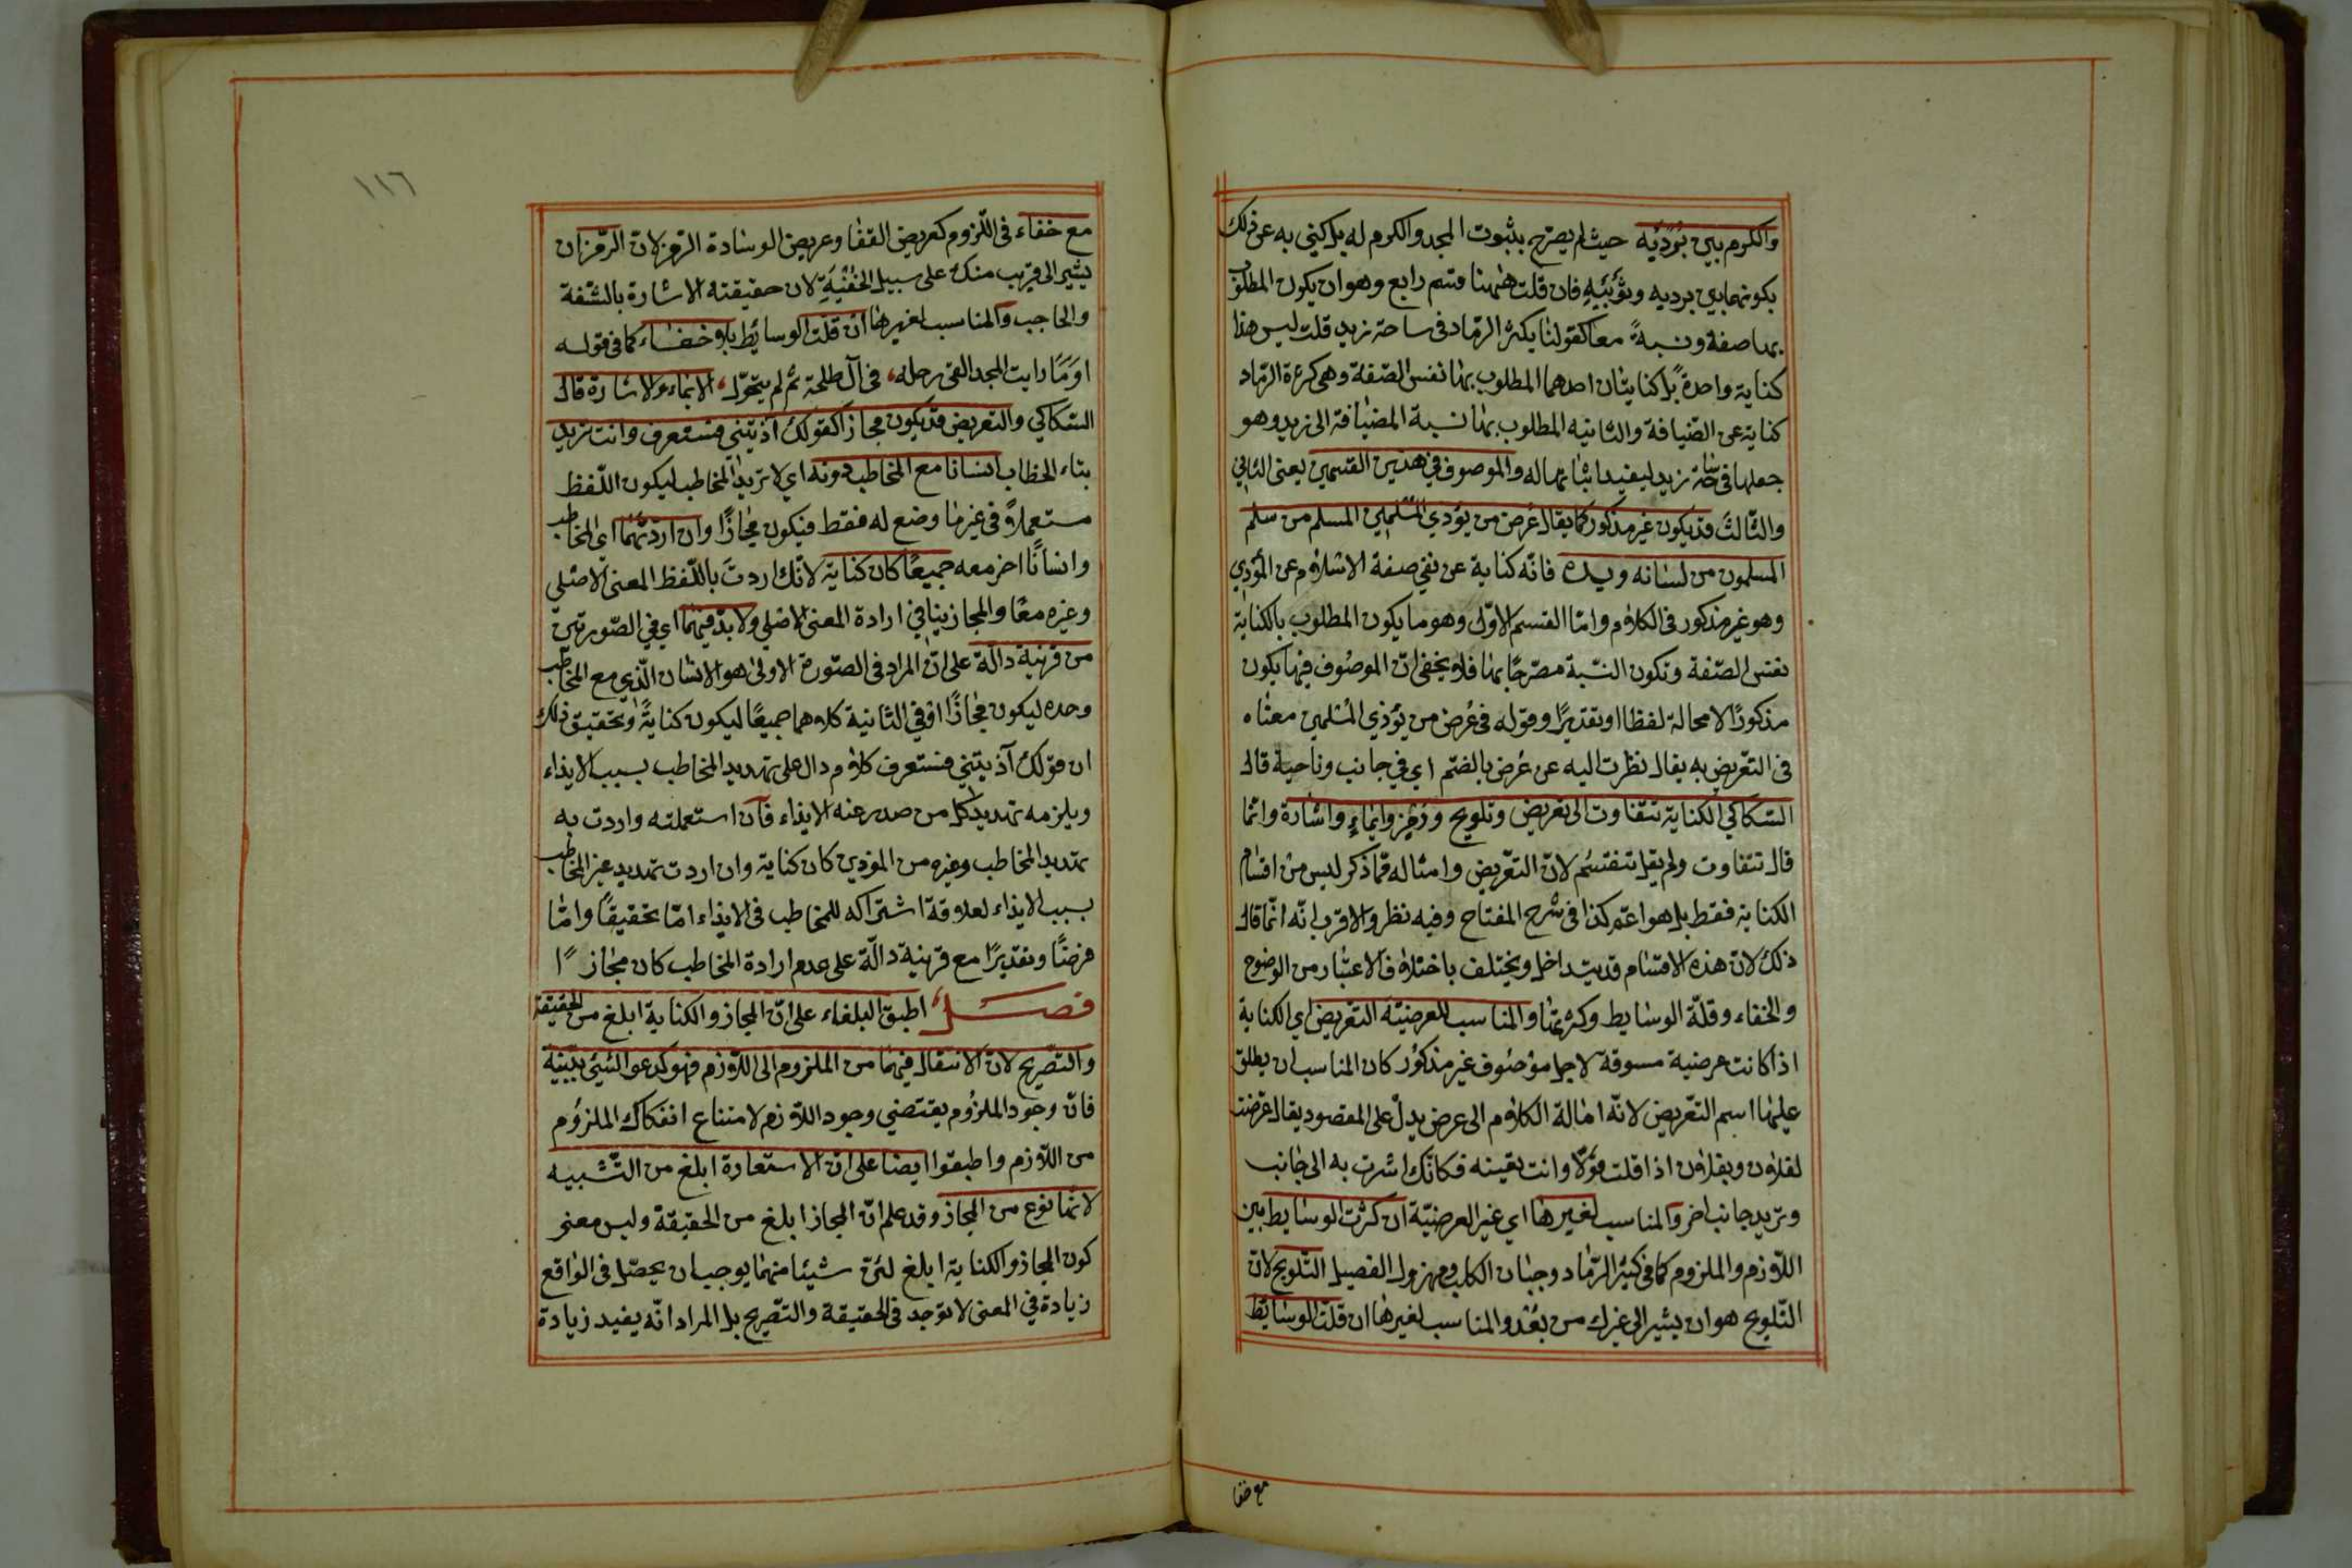 والكرم بين بُرديه حيث لم يصرح بثبوت المجد والكرم له بل كنى به عن ذلك
بكونهما بين برديه وثوبيه فان قلت ههنا قسم رابع وهو ان يكون المطلوب
بها صفة ونسبةً معا كقولنا يكثر الرماد فى ساحة زيد قلت ليس هذا
كناية واحدةً بل كنايتان احدهما المطلوب بها نفس الصّفة وهى كثرة الرّماد
كناية عن الضّيافة والثانيه المطلوب بها نسبة المضيافة الى زيد وهو
جعلها فى ساحة زيد ليفيد اثباتها له والموصوف في هذين القسمين يعنى الثاني
والثّالث قد يكون غير مذكور كما يقال عُرض من يؤذي المسلمين المسلم من سلم
المسلمون من لسانه ويده فانّه كناية عن نفي صفة الاسلام عن المؤذي
وهو غير مذكور فى الكلام وامّا القسم الاوّل وهو ما يكون المطلوب بالكناية
نفس الصّفة وتكون النّسبة مصرّحًا بها فلا يخفى انّ الموصوف فيها يكون
مذكورًا لا محالة لفظا او تقديرًا وقوله فى عُرض من يؤذي المسلمين معناه
فى التعّريض به يقال نظرت اليه عن عُرض بالضّم اي في جانب وناحية قال
السّكاكي الكناية تتفاوت الى تعريض وتلويح ورَمْزٍ وايمَاءٍ واشارة وانّما
قال تتفاوت ولم يقل تنقسم لانّ التعّريض وامثاله ممّا ذكر ليس من اقسام
الكناية فقط بل هو اعمّ كذا فى شرح المفتاح وفيه نظر والاقرب انّه انّما قال
ذلك لانّ هذه الاقسام قد يتداخل ويختلف باختلاف الاعتبار من الوضوح
والخفاء وقلّة الوسايط وكثرتها والمناسب للعرضيّة التعّريض اي الكناية
اذا كانت عرضية مسوقة لاجل موصُوف غير مذكوُر كان المناسب ان يطلق
عليها اسم التعّريض لانّه امالة الكلام الى عرض يدلّ على المقصود يقال عرّضت
لفلان وبفلان اذا قلت قولًا وانت تعينه فكانّك اشرت به الى جانب
وتريد جانب اخر والمناسب لغيرها اي غير العرضيّة ان كثرت الوسايط بين
اللّازم والملزوم كما فى كثير الرّماد وجبان الكلب ومهزول الفصيل التّلويح لانّ
التّلويح هو ان يشير الى غيرك من بُعْد والمناسب لغيرها ان قلّت الوسائط
مع خفا
١١٦
مع خفاء فى اللّزوم كعريض القفا وعريض الوسادة الرّمز لانّ الرّمز ان
يشير الى قريب منك على سبيل الخُفْيَةِ لان حقيقته الاشارة بالشّفة
والحاجب والمناسب لغيرها ان قلّت الوسائط بلا خفاء كما فى قوله
اوَمَا رايت المجد القى رحله، فى آل طلحة ثم لم يتحوّل، الايماء والاشارة قال
السّكاكي والتعريض قد يكون مجازا كقولك آذيتني فستعرف وانت تريد
بتاء الخطاب انسانا مع المخاطب دونه اي لا تريد المخاطب ليكون اللّفظ
مستعملًا فى غير ما وضع له فقط فيكون مجازًا وان اردتهما اي المخاطب
وانسانًا اخر معه جميعًا كان كناية لانّك اردت باللّفظ المعنى الاصلي
وغيره معًا والمجاز ينافي ارادة المعنى الاصلي ولا بدّ فيهما اي في الصّورتين
من قرينة دالّة على انّ المراد فى الصّورة الاولى هو الانسان الّذي مع المخاطب
وحده ليكون مجازًا او في الثانية كلاهما جميعًا ليكون كنايةً وتحقيق ذلك
ان قولك آذيتني فستعرف كلام دال على تهديد المخاطب بسبب الايذاء
ويلزمه تهديد كل من صدر عنه الايذاء فان استعملته واردت به
تهديد المخاطب وغيره من المؤذين كان كناية وان اردت تهديد غير المخاطب
بسبب الايذاء لعلاقة اشتراكه للمخاطب فى الايذاء امّا تحقيقًا وامّا
فرضًا وتقديرًا مع قرينة دالّة على عدم ارادة المخاطب كان مجازًا
فصل اطبق البلغاء على انّ المجاز والكناية ابلغ من الحقيقة
والتصّريح لانّ الانتقال فيهما من الملزوم الى اللّازم فهو كدعوى الشيئ ببيّنة
فانّ وجود الملزوم يقتضي وجود اللّازم لامتناع انفكاك الملزوُم
من اللّازم واطبقوا ايضا على انّ الاستعارة ابلغ من التّشبيه
لانّها نوع من المجاز وقد علم انّ المجاز ابلغ من الحقيقة وليس معنى
كون المجاز والكناية ابلغ انّ شيئا منهما يوجب ان يحصّل فى الواقع
زيادة في المعنى لا توجد فى الحقيقة والتصّريح بل المراد انّه يفيد زيادة